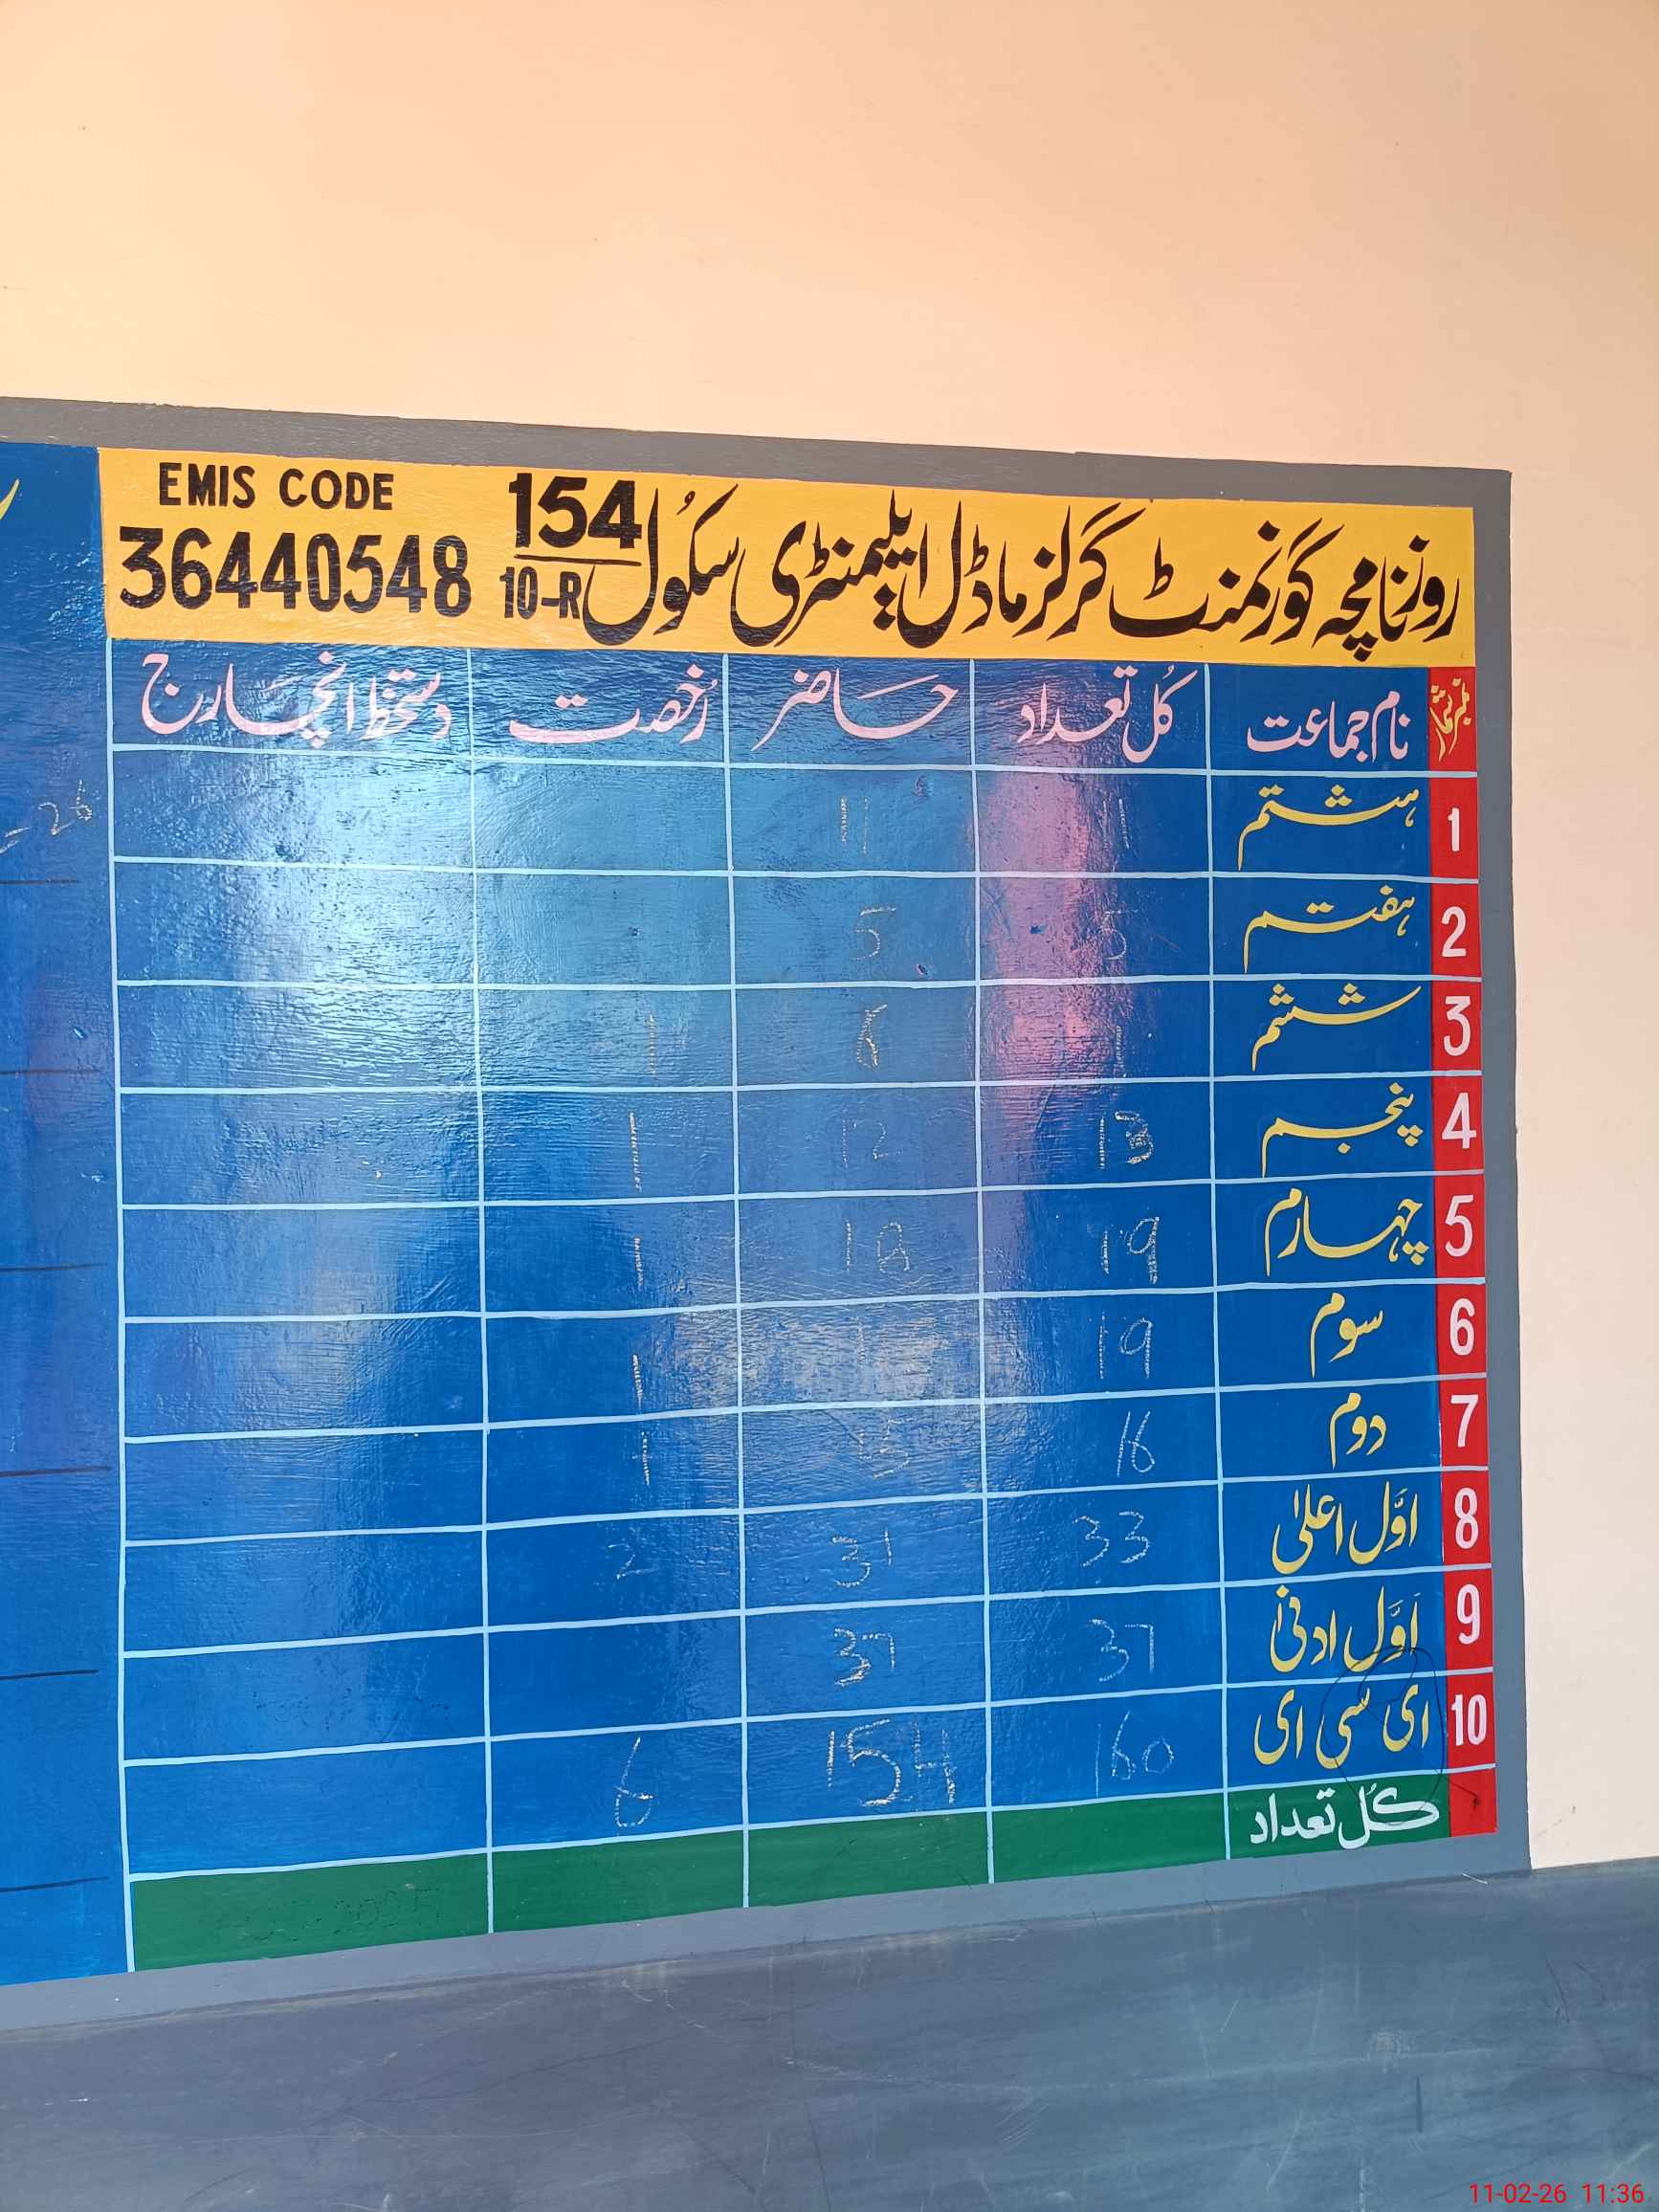 روزنامچہ گورنمنٹ گرلز ماڈل ایلیمنٹری سکول 154/10-R
EMIS CODE
36440548
نمبر شمار نام جماعت کُل تعداد حاضر رُخصت دستخط انچارج
1 ہشتم 11 11
2 ہفتم 5 5
3 ششم 6 1
4 پنجم 13 12 1
5 چہارم 19 18 1
6 سوم 19 1
7 دوم 16 15 1
8 اوّل اعلیٰ 33 31 2
9 اوّل ادنیٰ 37 37
10 ای سی ای 160 154 6
کُل تعداد
- 26
11-02-26 11:36